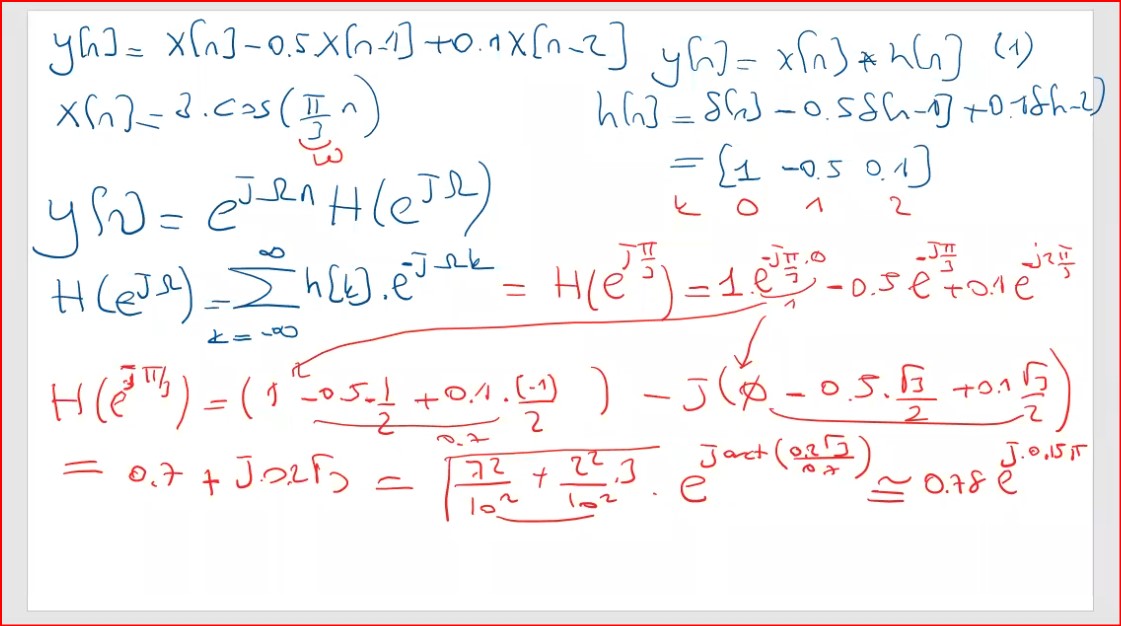 y[n] = x[n] - 0.5x[n-1] + 0.1x[n-2]
y[n] = x[n] * h[n] (1)
x[n] = 3.cos(π/3 n)
ω
h[n] = δ[n] - 0.5δ[n-1] + 0.1δ[n-2)
= [1 -0.5 0.1]
k 0 1 2
y[n] = e^{jΩn} H(e^{jΩ})
H(e^{jΩ}) = Σ_{k=-∞}^{∞} h[k].e^{-jΩk} = H(e^{jπ/3}) = 1.e^{-jπ/3.0} - 0.5e^{-jπ/3} + 0.1e^{-j2π/3}
1
H(e^{jπ/3}) = (1 - 0.5.1/2 + 0.1.(-1)/2) - j(0 - 0.5.√3/2 + 0.1√3/2)
0.7
= 0.7 + j.0.2√3 = √(7²/10² + 2²/10².3) . e^{j arct(0.2√3/0.7)} ≅ 0.78 e^{j.0.15π}